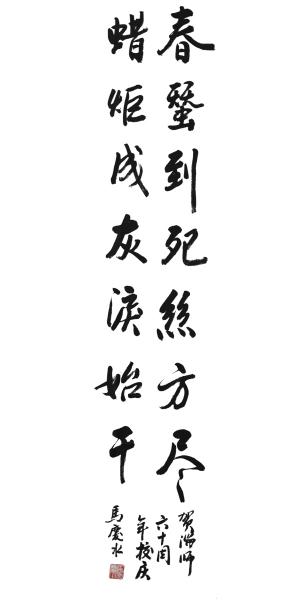 春蠶到死絲方尽
蜡炬成灰淚始干
贺湛师
六十周
年校庆
馬慶水